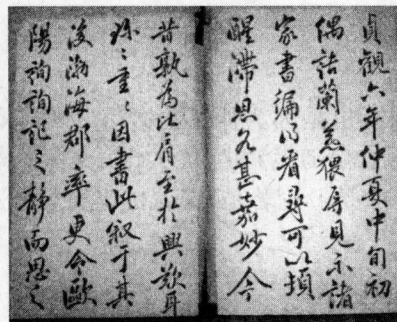 貞觀六年仲夏中旬初
偶詣蘭惹猥辱見示諸
家書編得省尋可以頓
醒滯思尤甚嘉妙今
昔孰為比肩至於興歎耳
珎〻重〻因書此叙于其
後渤海郡率更令歐
陽詢詢記之靜而思之